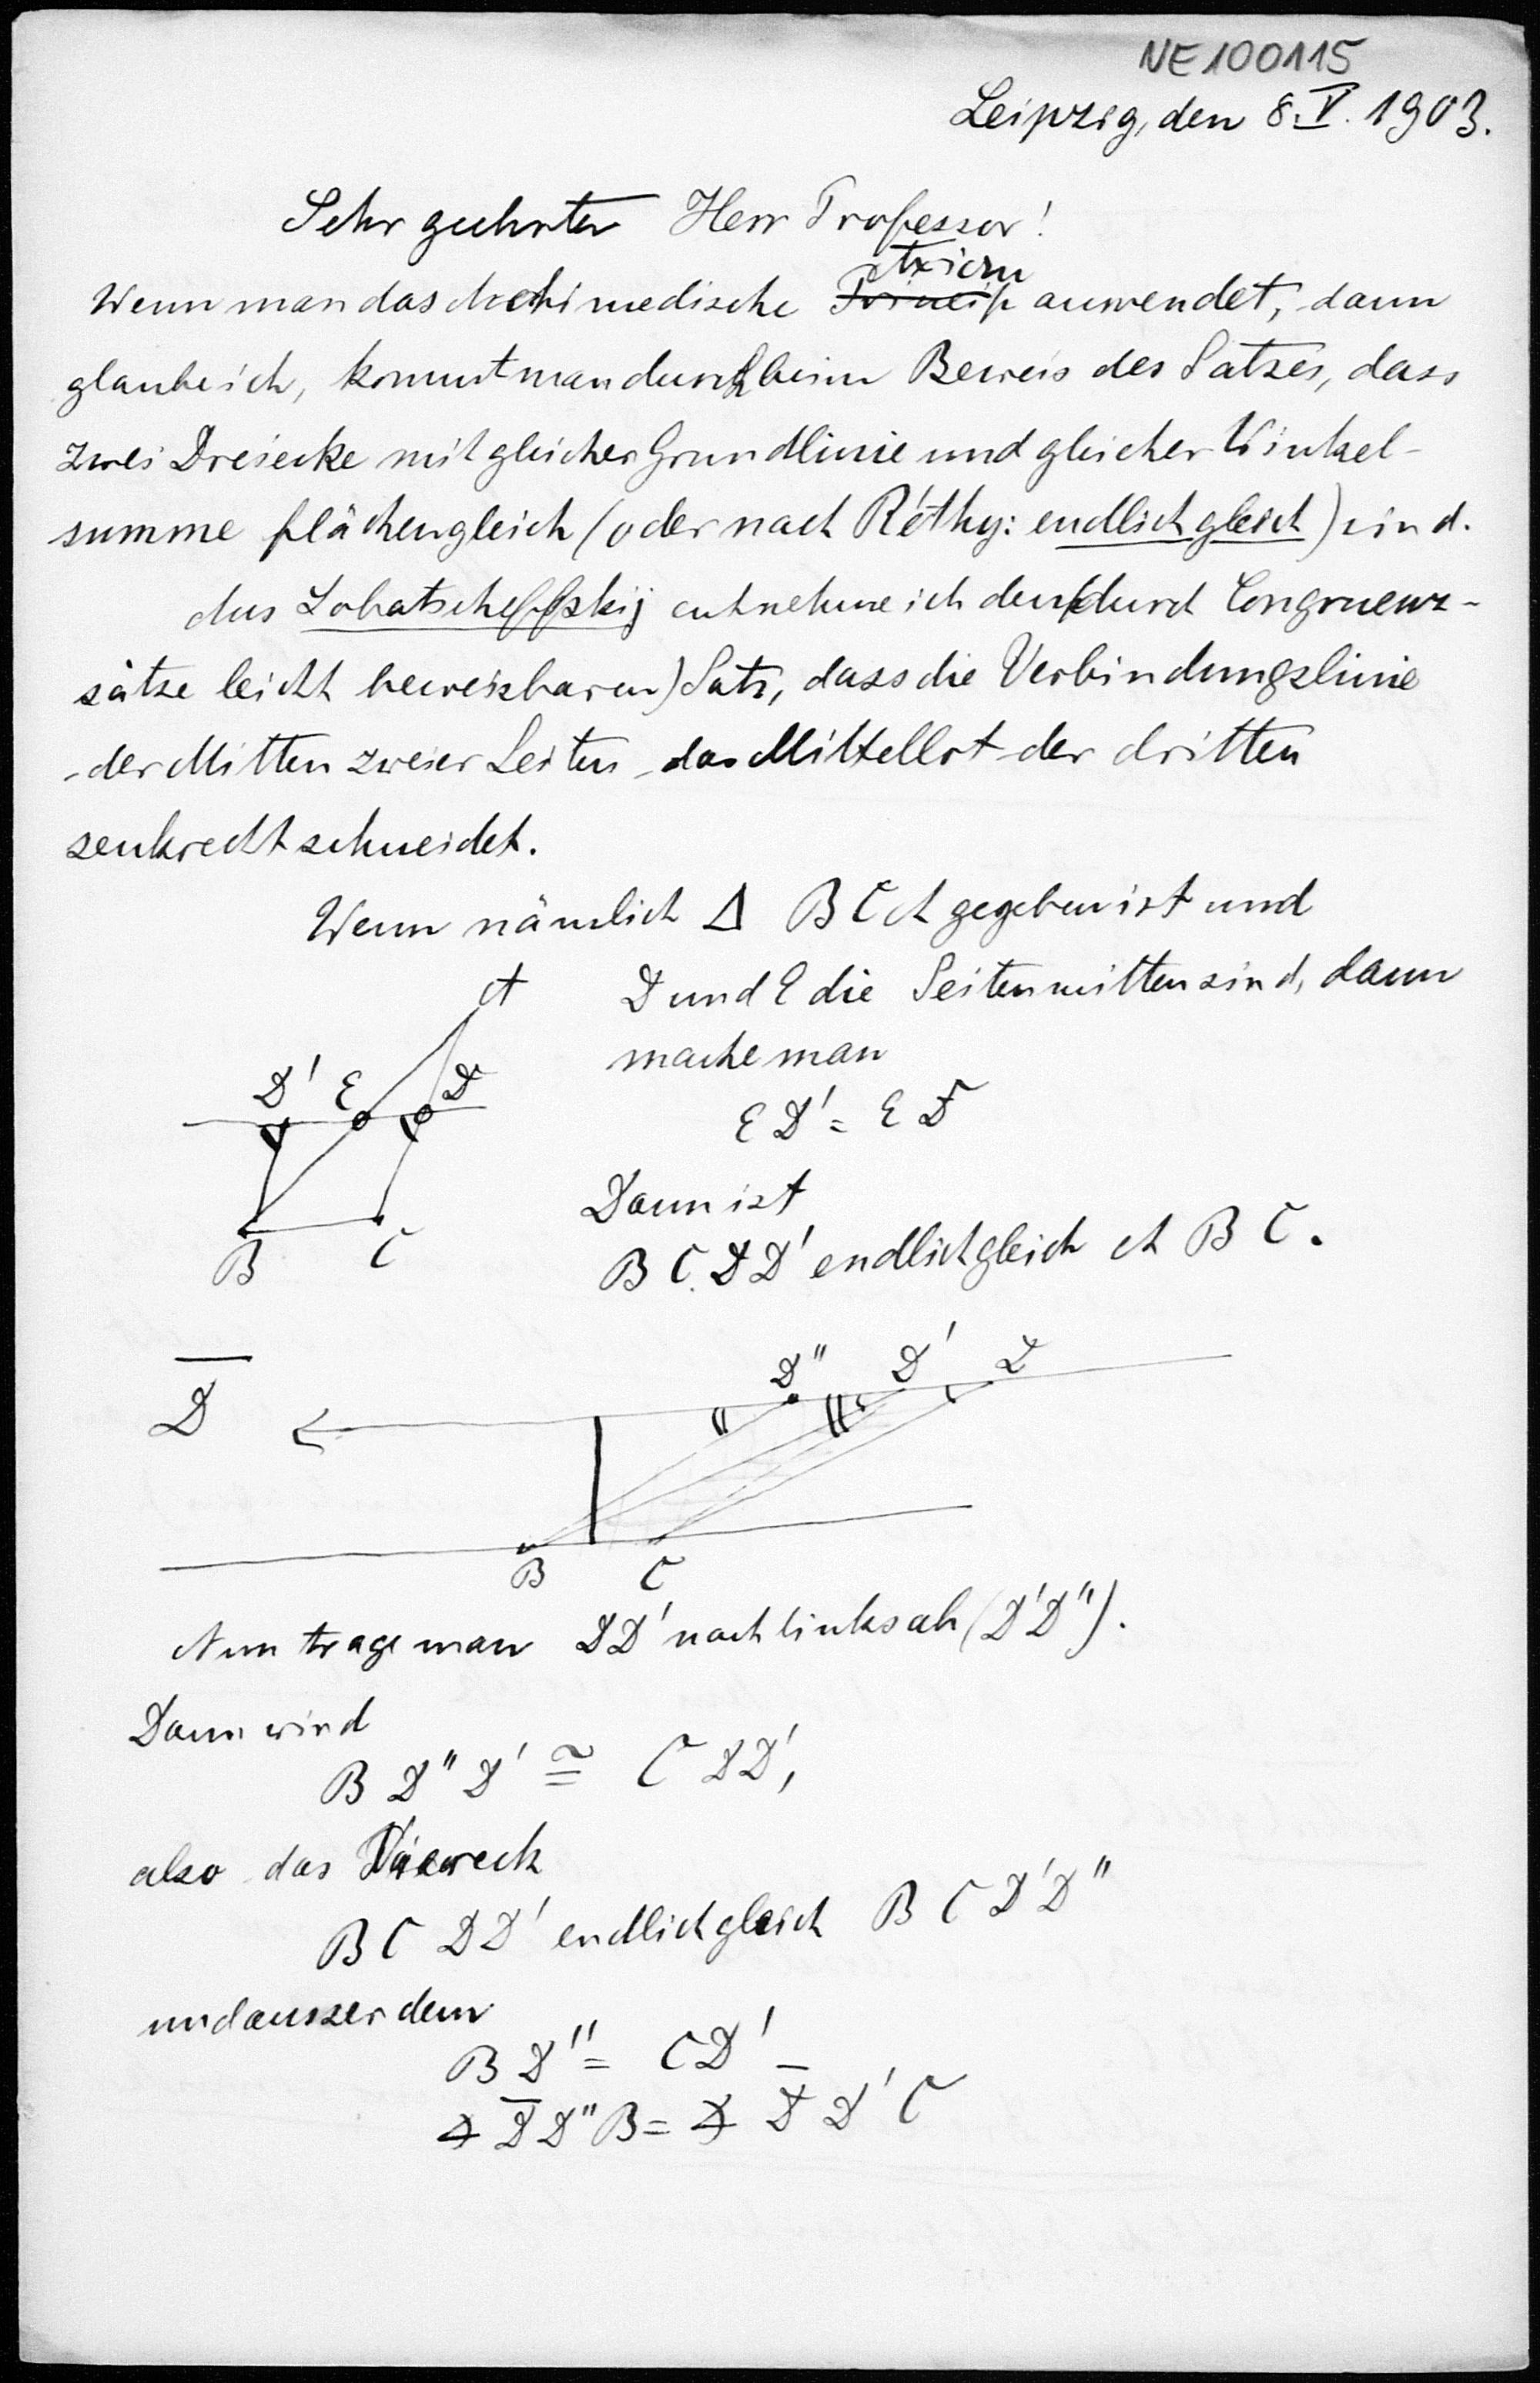 NE100115
Leipzig, den 8. V. 1903.
Sehr geehrter Herr Professor!
Axiom
Wenn man das Archimedische Princip anwendet, dann
glaube ich, kommt man durch beim Beweis des Satzes, dass
zwei Dreiecke mit gleicher Grundlinie und gleicher Winkel-
summe flächengleich (oder nach Réthy: endlichgleich) sind.
Aus Lobatscheffskij entnehme ich den (durch Congruenz-
sätze leicht beweisbaren) Satz, dass die Verbindungslinie
der Mitten zweier Seiten das Mittellot der dritten
senkrecht schneidet.
Wenn nämlich Δ BCA gegeben ist und
D und E die Seitenmitten sind, dann
mache man
ED' = ED
Dann ist
BCDD' endlichgleich ABC.
A
D' E D
B C
D'' D' D
D̅
B C
Nun trage man DD' nach links ab (D'D'').
Dann wird
BD''D' ≅ CDD',
also das Viereck
BCDD' endlichgleich BCD'D''
und ausserdem
BD'' = CD'
∡ D̅D''B = ∡ D̅D'C